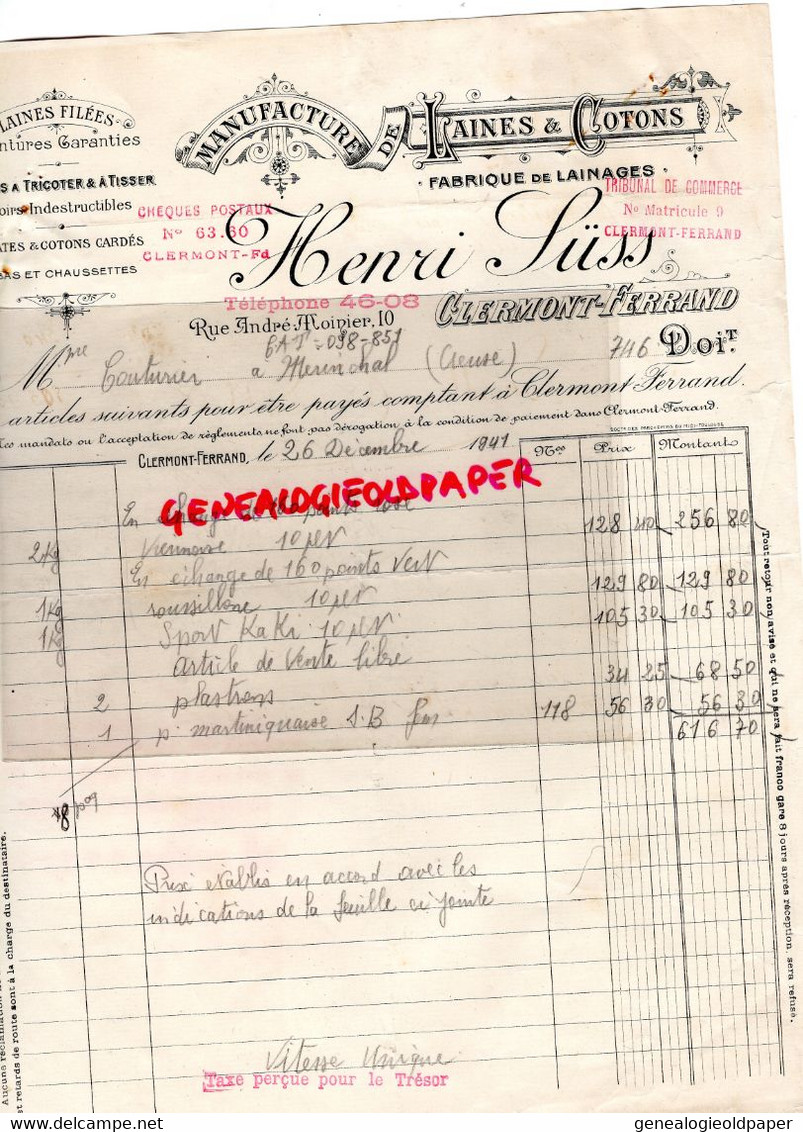 LAINES FILÉES
ntures Garanties
S A TRICOTER & À TISSER
oirs Indestructibles
ATES & COTONS CARDÉS
BAS ET CHAUSSETTES
MANUFACTURE DE LAINES & COTONS
FABRIQUE DE LAINAGES
CHEQUES POSTAUX
No 63.60
CLERMONT-Fd
TRIBUNAL DE COMMERCE
No Matricule 9
CLERMONT-FERRAND
Henri Süss
Téléphone 46-08
CLERMONT-FERRAND
Rue André-Moinier, 10
CAT 098-851
Mme Couturier a Merinchal (Creuse) 746 Doit
articles suivants pour être payés comptant à Clermont-Ferrand.
Les mandats ou l'acceptation de règlements ne font pas dérogation à la condition de paiement dans Clermont-Ferrand.
CLERMONT-FERRAND, le 26 Décembre 1941
Nos Prix Montant
GENEALOGIEOLDPAPER
En échange de 160 points rose
2 Kg Viennoise 10 128 40 256 80
En échange de 160 points Vert
1 Kg roussillone 10 129 80 129 80
1 Kg Sport KaKi 10 105 30 105 30
article de Vente libre
2 plastrons 34 25 68 50
1 p. martiniquaise S.B 118 56 30 56 30
616 70
Prix etablis en accord avec les
indications de la feuille ci jointe
Vitesse Unique
Taxe perçue pour le Trésor
Tout retour non avisé et qui ne sera fait franco gare 8 jours après réception, sera refusé.
Aucune réclamation
et retards de route sont à la charge du destinataire.
genealogieoldpaper